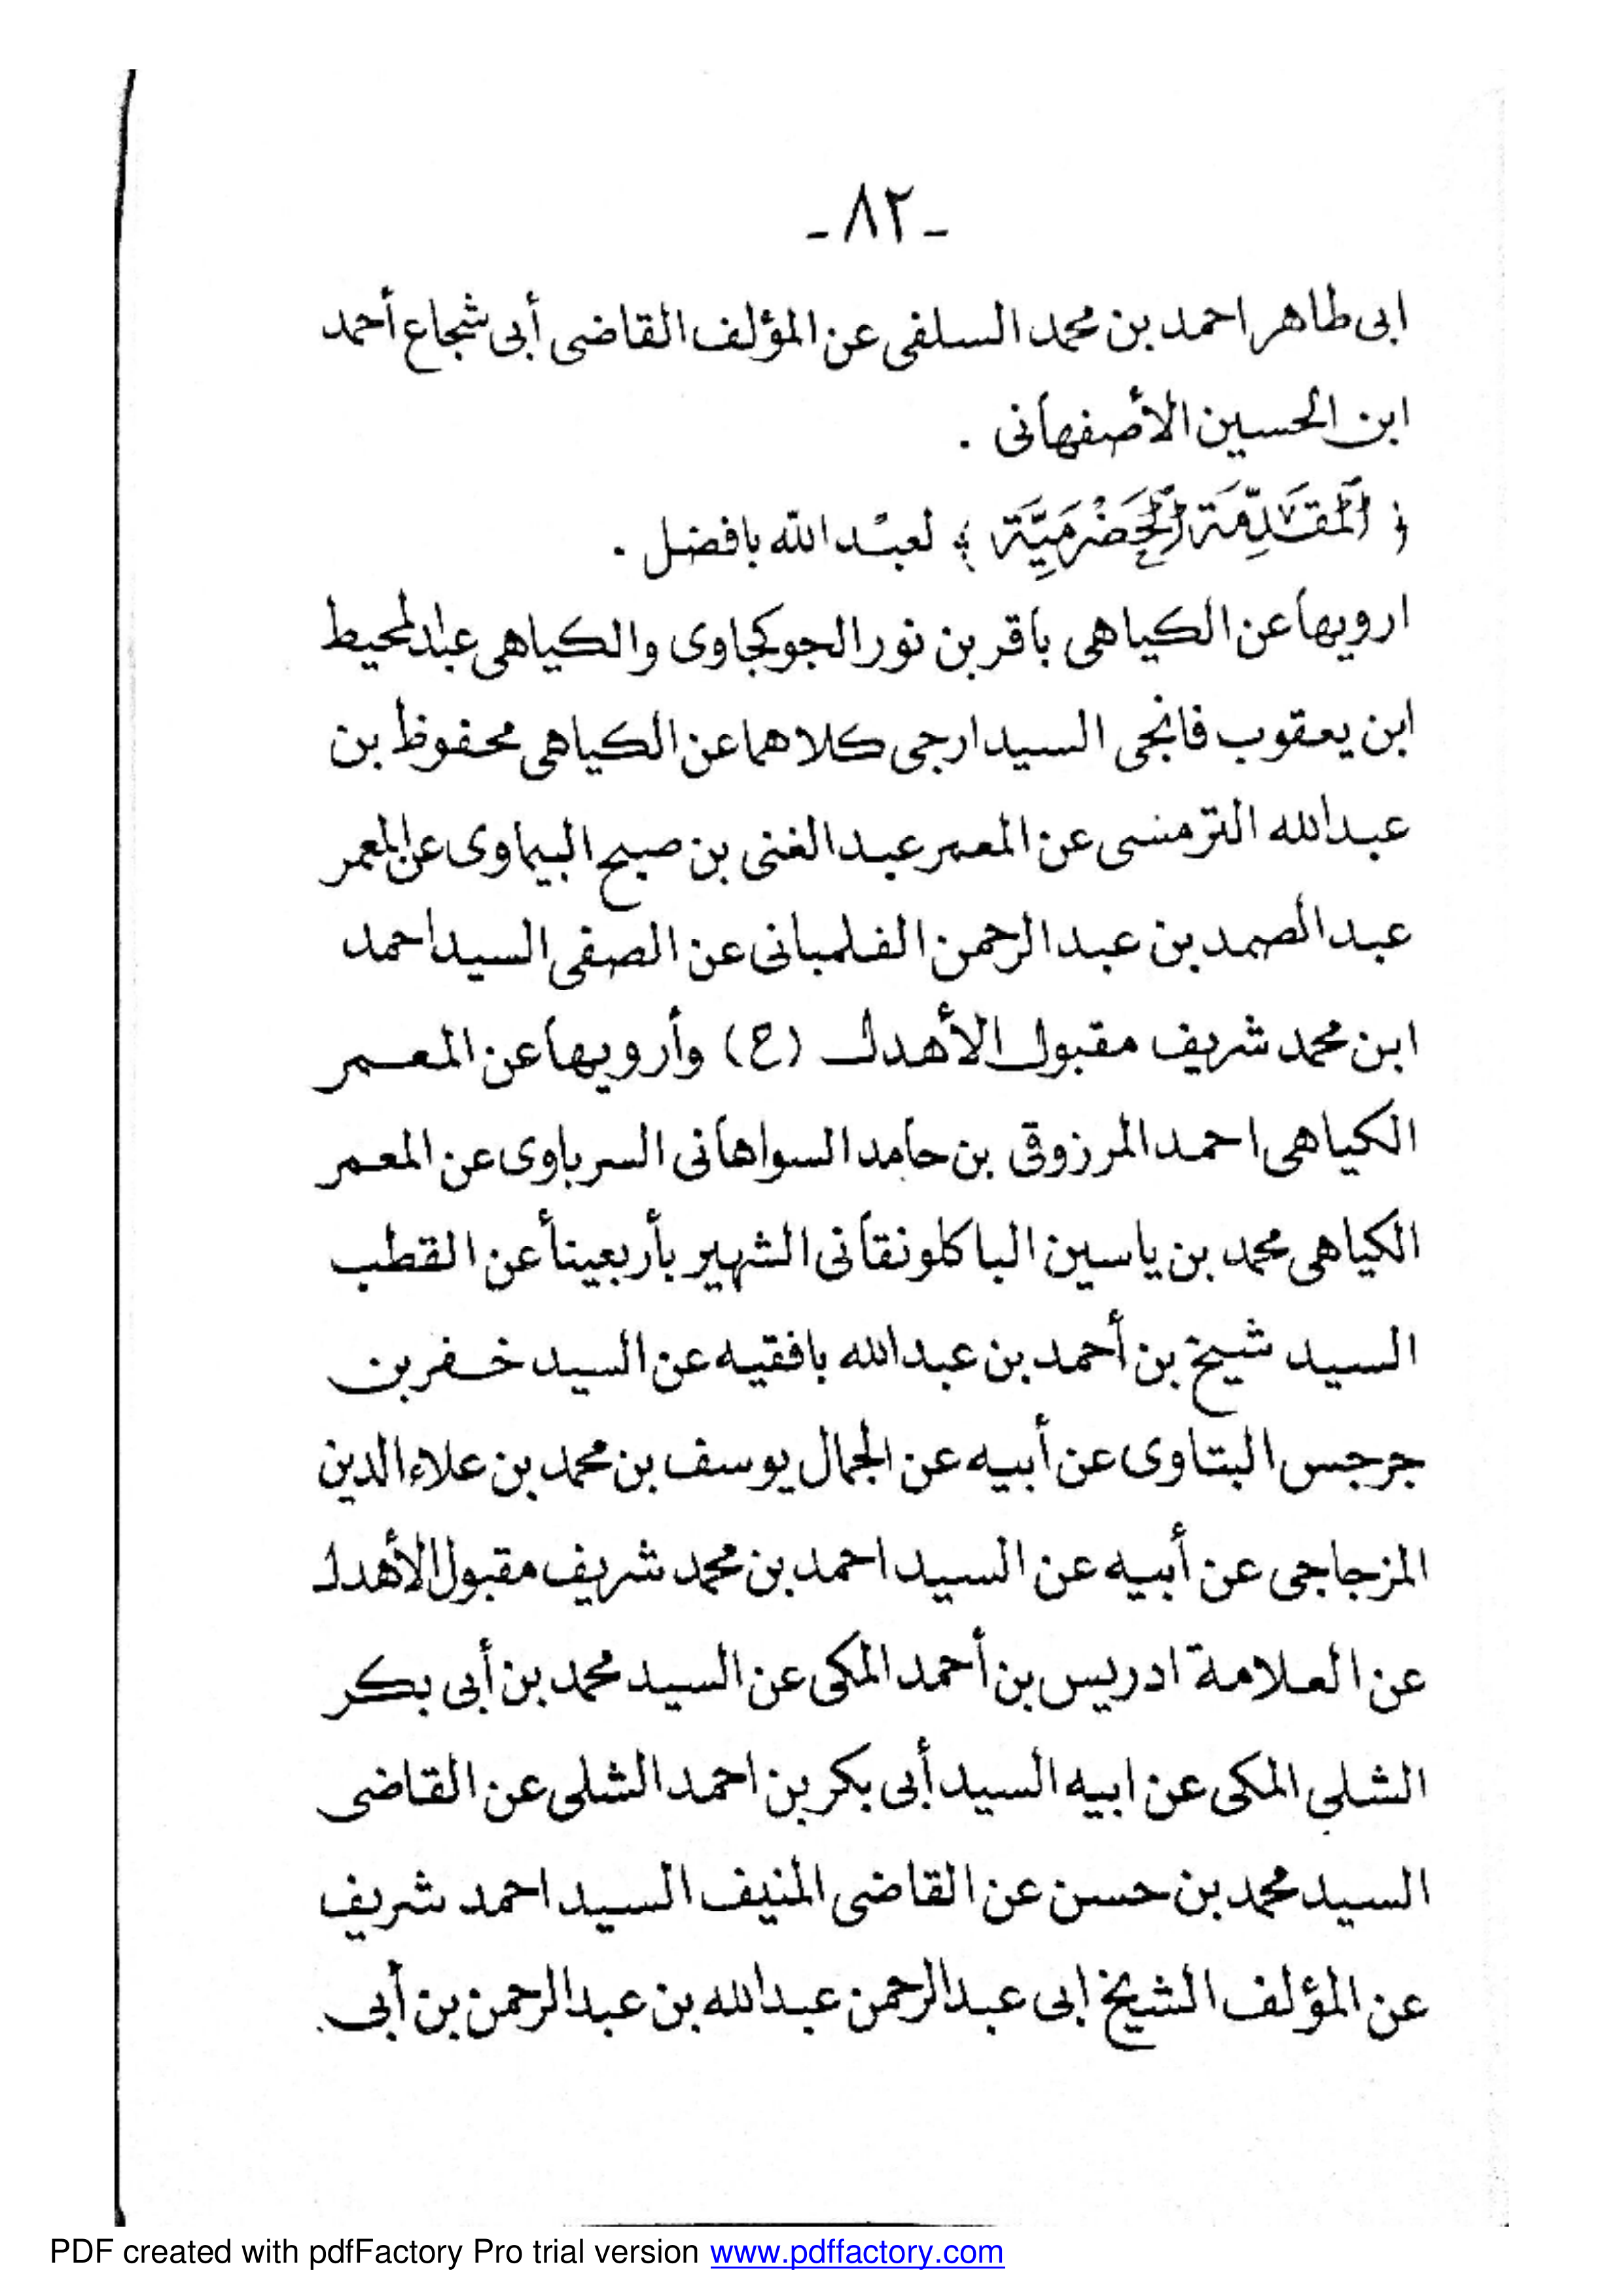 - ٨٢ -
ابى طاهر احمد بن محمد السلفى عن المؤلف القاضى أبى شجاع أحمد
ابن الحسين الأصفهانى .
﴿ اَلْمُقَدِّمَةُ الْحَضْرَمِيَّة ﴾ لعبد الله بافضل .
ارويها عن الكياهى باقر بن نور الجوكجاوى والكياهى عبد المحيط
ابن يعقوب فانجى السيدارجى كلاهما عن الكياهى محفوظ بن
عبدالله الترمسى عن المعمر عبد الغنى بن صبح البيماوى عن المعمر
عبد الصمد بن عبد الرحمن الفلمبانى عن الصفى السيد احمد
ابن محمد شريف مقبول الأهدل (ح) وأرويها عن المعمر
الكياهى احمد المرزوقى بن حامد السواهانى السرباوى عن المعمر
الكياهى محمد بن ياسين الباكلونقانى الشهير بأربعينأ عن القطب
السيد شيخ بن أحمد بن عبدالله بافقيه عن السيد خضر بن
جرجس البتاوى عن أبيه عن الجمال يوسف بن محمد بن علاء الدين
المزجاجى عن أبيه عن السيد احمد بن محمد شريف مقبول الأهدل
عن العلامة ادريس بن أحمد المكى عن السيد محمد بن أبى بكر
الشلى المكى عن ابيه السيد أبى بكر بن احمد الشلى عن القاضى
السيد محمد بن حسن عن القاضى المنيف السيد احمد شريف
عن المؤلف الشيخ ابى عبد الرحمن عبدالله بن عبد الرحمن بن أبى
PDF created with pdfFactory Pro trial version www.pdffactory.com